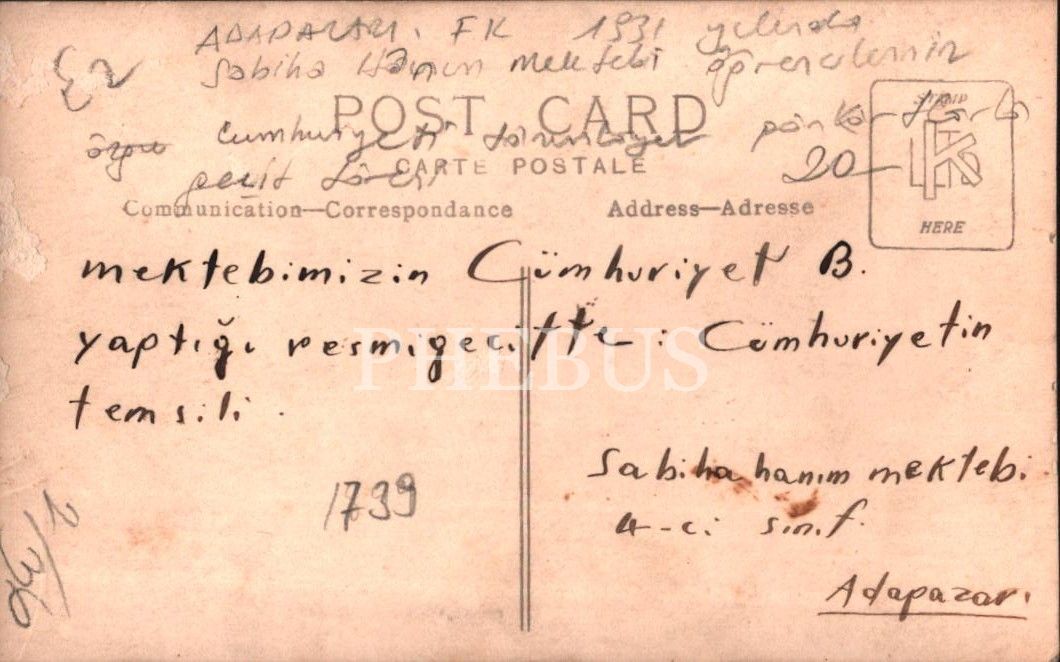 ADAPAZARI. FK 1931 yılında
Sabiha Hanım Mektebi öğrencilerinin
POST CARD
Cumhuriyeti
CARTE POSTALE
20-
STAMP
HERE
geçit
Communication—Correspondance Address—Adresse
mektebimizin Cümhuriyet B.
yaptığı resmigeçitte : Cümhuriyetin
temsili.
PHEBUS
Sabiha hanım mektebi
4-ci sınıf.
1739
Adapazarı